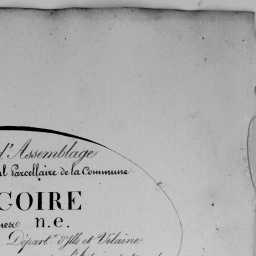 d'Assemblage
al Parcellaire de la Commune
GOIRE
n.e.
Départ.t d'Ille et Vilaine